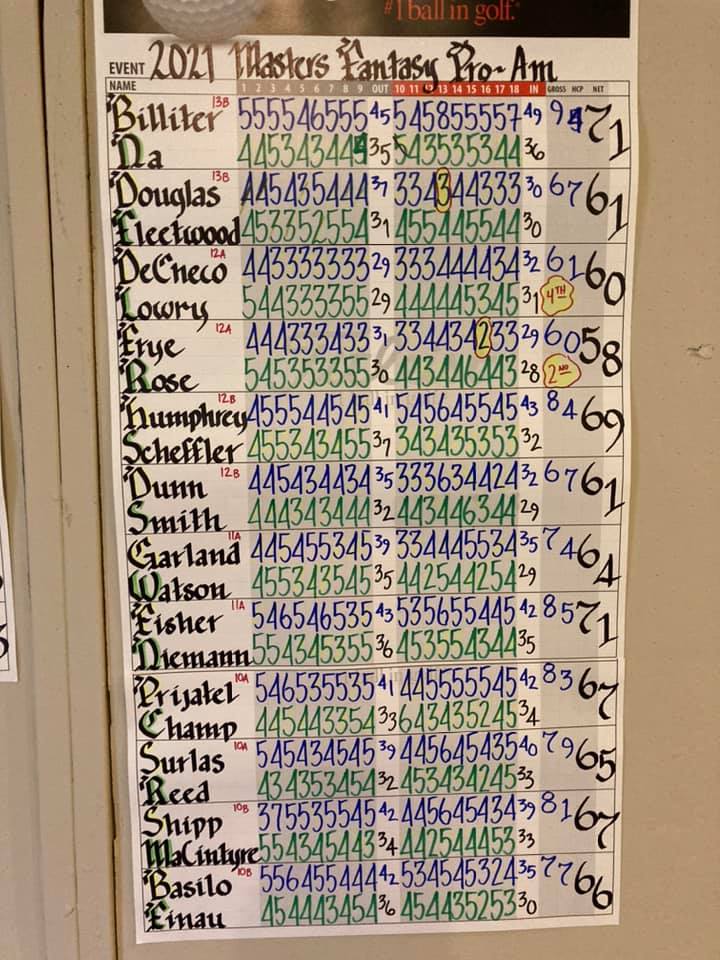 #1 ball in golf.®
EVENT 2021 Masters Fantasy Pro-Am
NAME 1 2 3 4 5 6 7 8 9 OUT 10 11 12 13 14 15 16 17 18 IN GROSS HCP NET
Billiter 13B 555546555 45 545855557 49 94 71
Na 445343449 35 543535344 36
Douglas 13B 445435444 37 334344333 30 67 61
Fleetwood 453352554 31 455445544 30
DeCheco 12A 443333333 29 333444434 32 61 60
Lowry 544333355 29 444445345 31 4TH
Frye 12A 444333433 31 334434233 29 60 58
Rose 545353355 30 443446443 28 2ND
Humphrey 12B 455544545 41 545645545 43 84 69
Scheffler 455343455 37 343435353 32
Dunn 12B 445434434 35 333634424 32 67 61
Smith 444343444 32 443446344 29
Garland 11A 445455345 39 334445534 35 74 64
Watson 455343545 35 442544254 29
Fisher 11A 546546535 43 535655445 42 85 71
Niemann 554345355 36 453554344 35
Prijatel 10A 546535535 41 445555545 42 83 67
Champ 445443354 33 643435245 34
Surlas 10A 545434545 39 445645435 40 79 65
Reed 434353454 32 453434245 33
Shipp 10B 375535545 42 445645434 39 81 67
MaCintyre 554345443 34 442544453 33
Basilo 10B 556455444 42 534545324 35 77 66
Einau 454443454 36 454435253 30